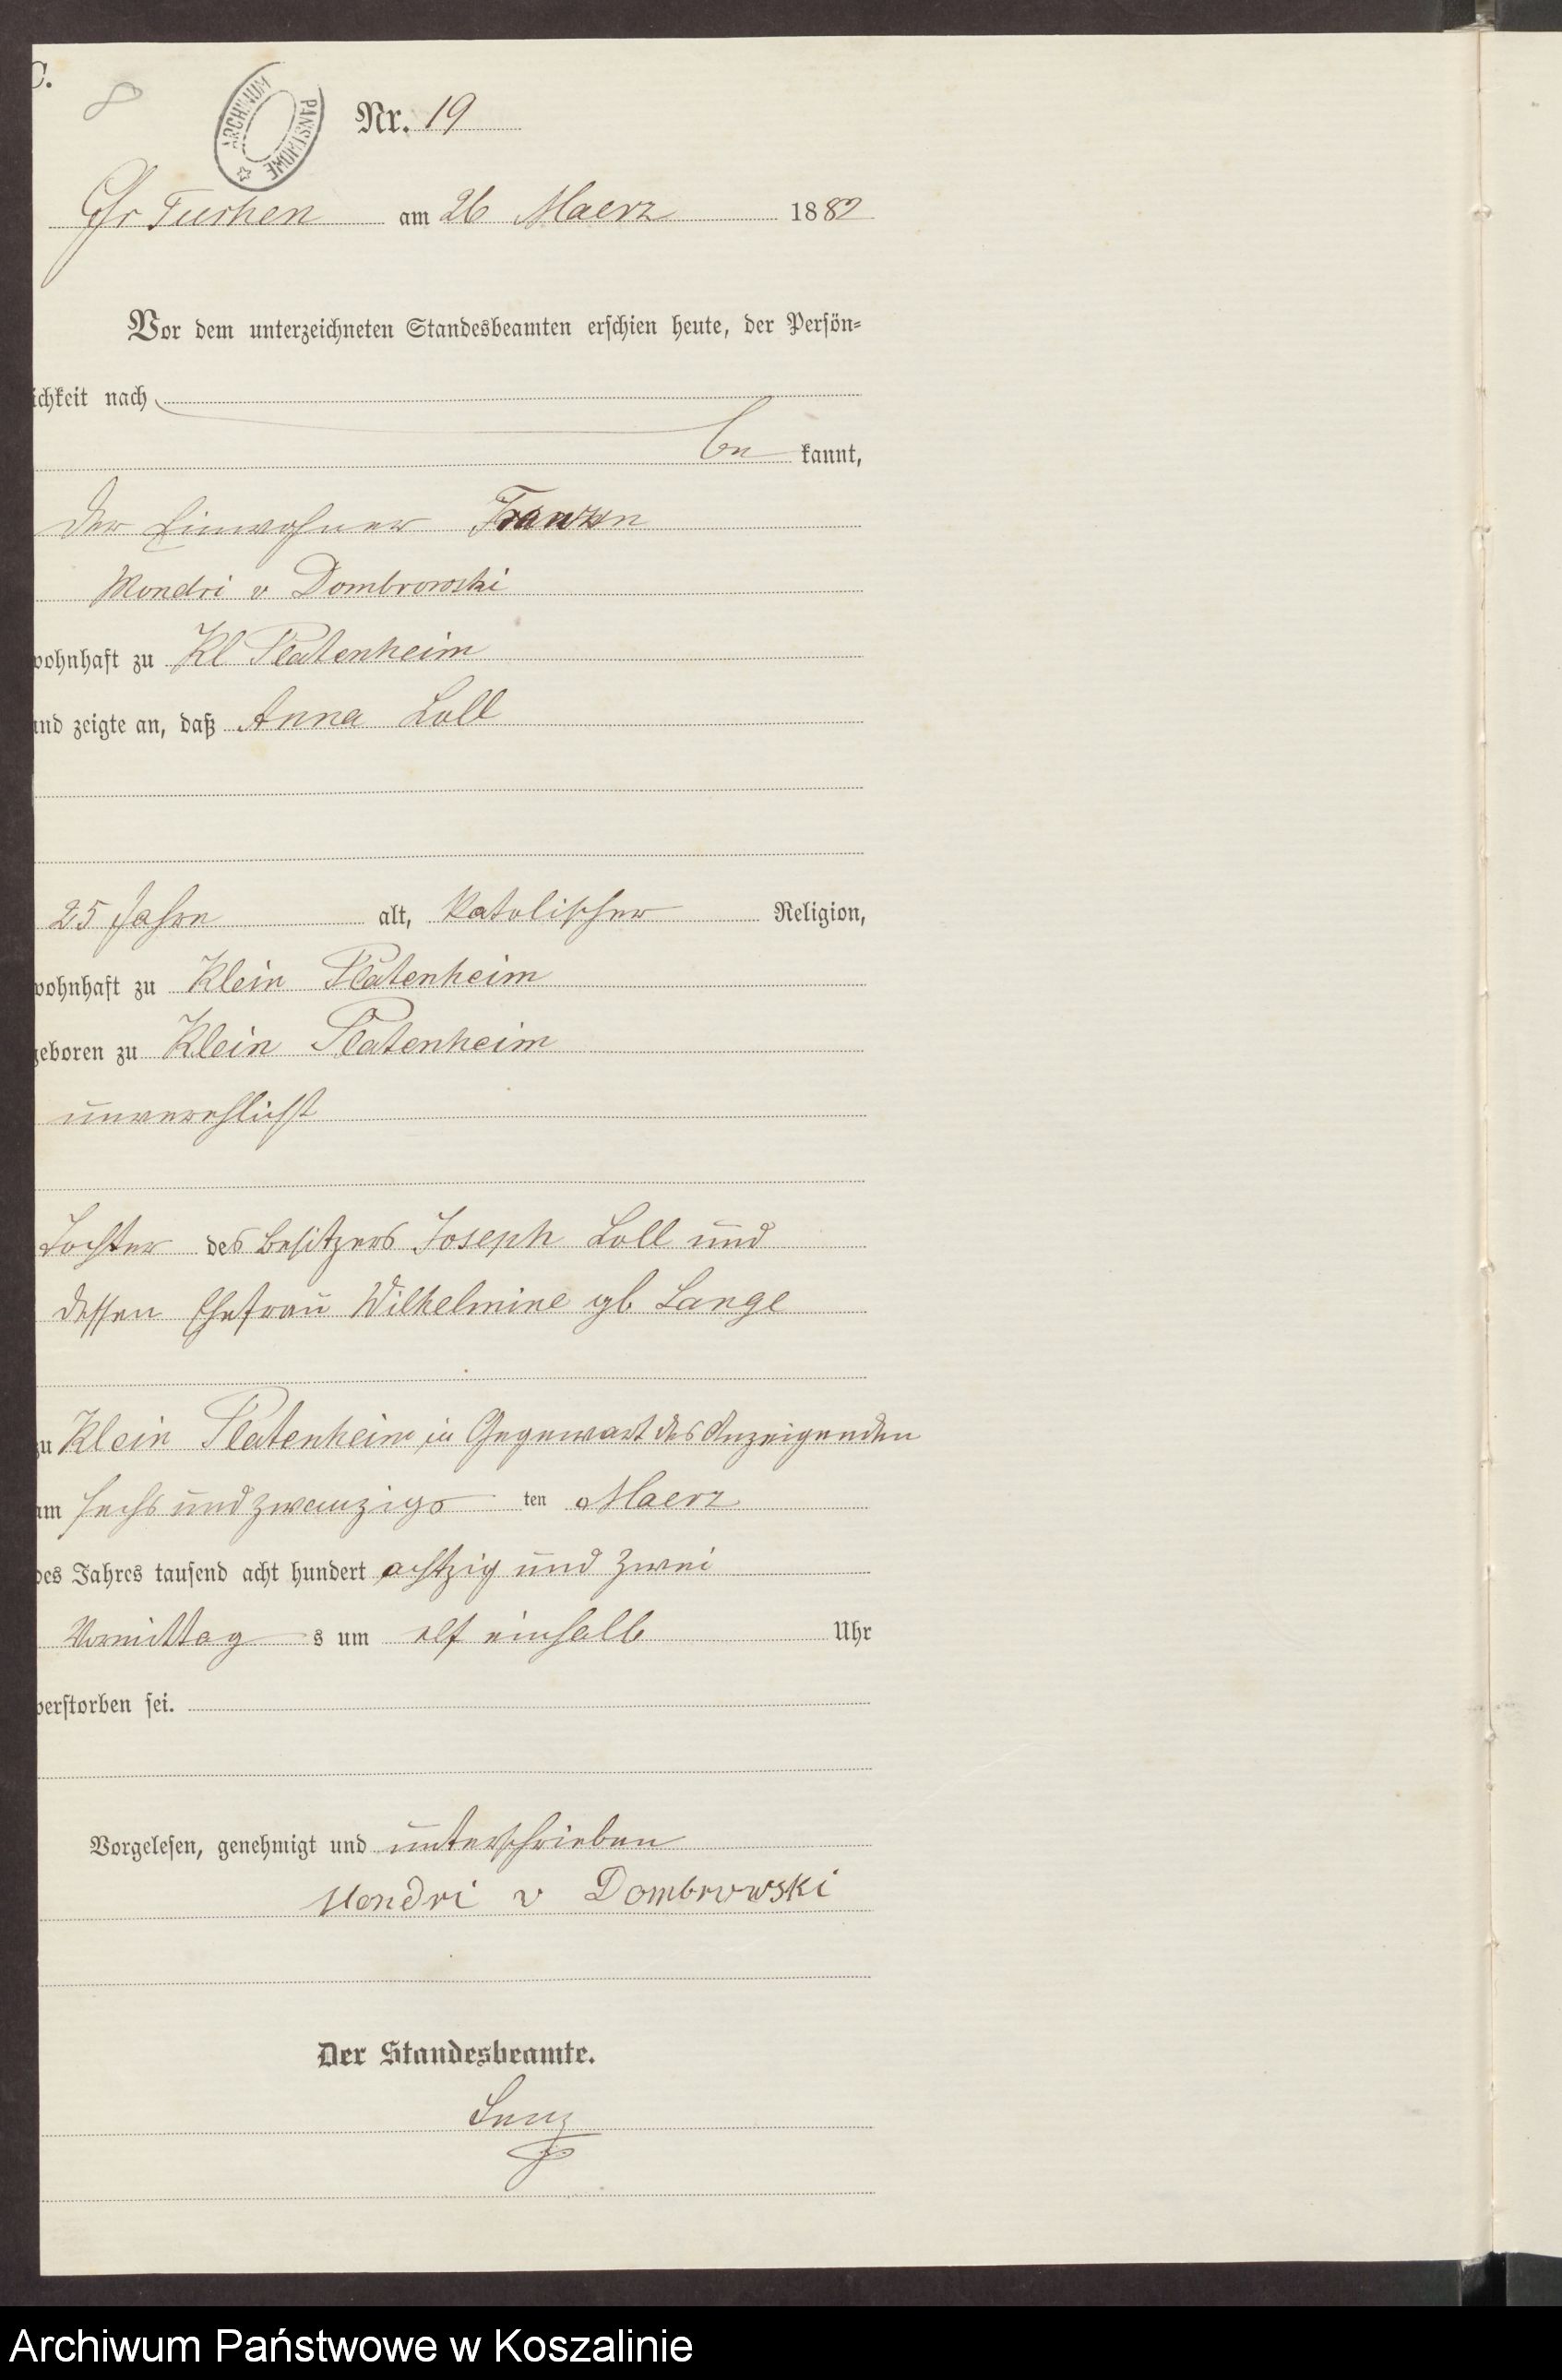 C.
8
ARCHIWUM PAŃSTWOWE
Nr. 19
Gr Tuchen am 26 Maerz 1882
Vor dem unterzeichneten Standesbeamten erschien heute, der Persön-
ichkeit nach
be kannt,
der Einwohner
Mondri v Dombrowski
wohnhaft zu Kl Platenheim
und zeigte an, daß Anna Loll
25 Jahre alt, Katolischer Religion,
wohnhaft zu Klein Platenheim
geboren zu Klein Platenheim
unverehlicht
Tochter des Besitzers Joseph Loll und
dessen Ehefrau Wilhelmine gb Lange
zu Klein Platenheim in Gegenwart des Anzeigenden
am sechs und zwanzigs ten Maerz
des Jahres tausend acht hundert achtzig und zwei
Vormittag s um elf einhalb Uhr
verstorben sei.
Vorgelesen, genehmigt und unterschrieben
Mondri v Dombrowski
Der Standesbeamte.
Lenz
Archiwum Państwowe w Koszalinie